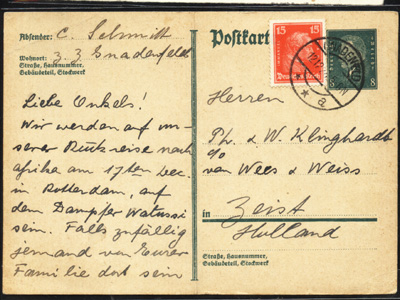 Absender: C. Schmitt
z. Z. Gnadenfeld
Wohnort:
Straße, Hausnummer,
Gebäudeteil, Stockwerk
Liebe Onkels!
Wir werden auf un-
serer Rückreise nach
Afrika am 17ten Dec.
in Rotterdam, auf
dem Dampfer Watussi
sein. Falls zufällig
jemand von Eurer
Familie dort sein
Postkart
15 15
8
Herren
Ph. & W. Klinghardt
c/o
van Wees & Weiss
in Zeist
Holland
Straße, Hausnummer,
Gebäudeteil, Stockwerk